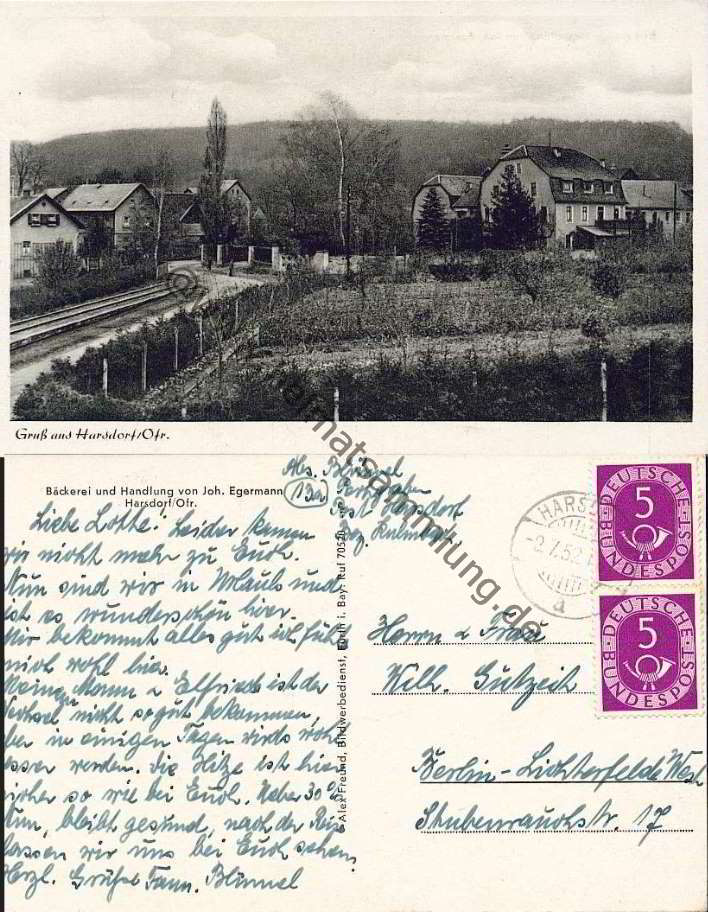 Gruß aus Harsdorf/Ofr.
Bäckerei und Handlung von Joh. Egermann
Harsdorf/Ofr.
Abs.
(13a)
Post Harsdorf
Bez. Kulmbach
Liebe Lotte! Leider kamen
wir nicht mehr zu Euch.
Nun sind wir in Urlaub und
ist es wunderschön hier.
Mir bekommt alles gut ich fühle
mich wohl hier.
Meine Mann u. Elfriede ist der
Wechsel nicht so gut bekommen,
aber in einigen Tagen wirds wohl
besser werden. Die Hitze ist hier
sicher so wie bei Euch. Ueber 30°
Nun, bleibt gesund, nach der Reise
lassen wir uns bei Euch sehen.
Herzl. Grüße Fam. Blümel
Alex Freund, Bildwerbedienst, Fürth i. Bay. Ruf 70520
HARS
-2.7.52
a
DEUTSCHE
5
BUNDESPOST
DEUTSCHE
5
BUNDESPOST
Herrn u Frau
Wilh. Gutzeit
Berlin-Lichterfelde West
Stubenrauchstr. 17
heimatsammlung.de